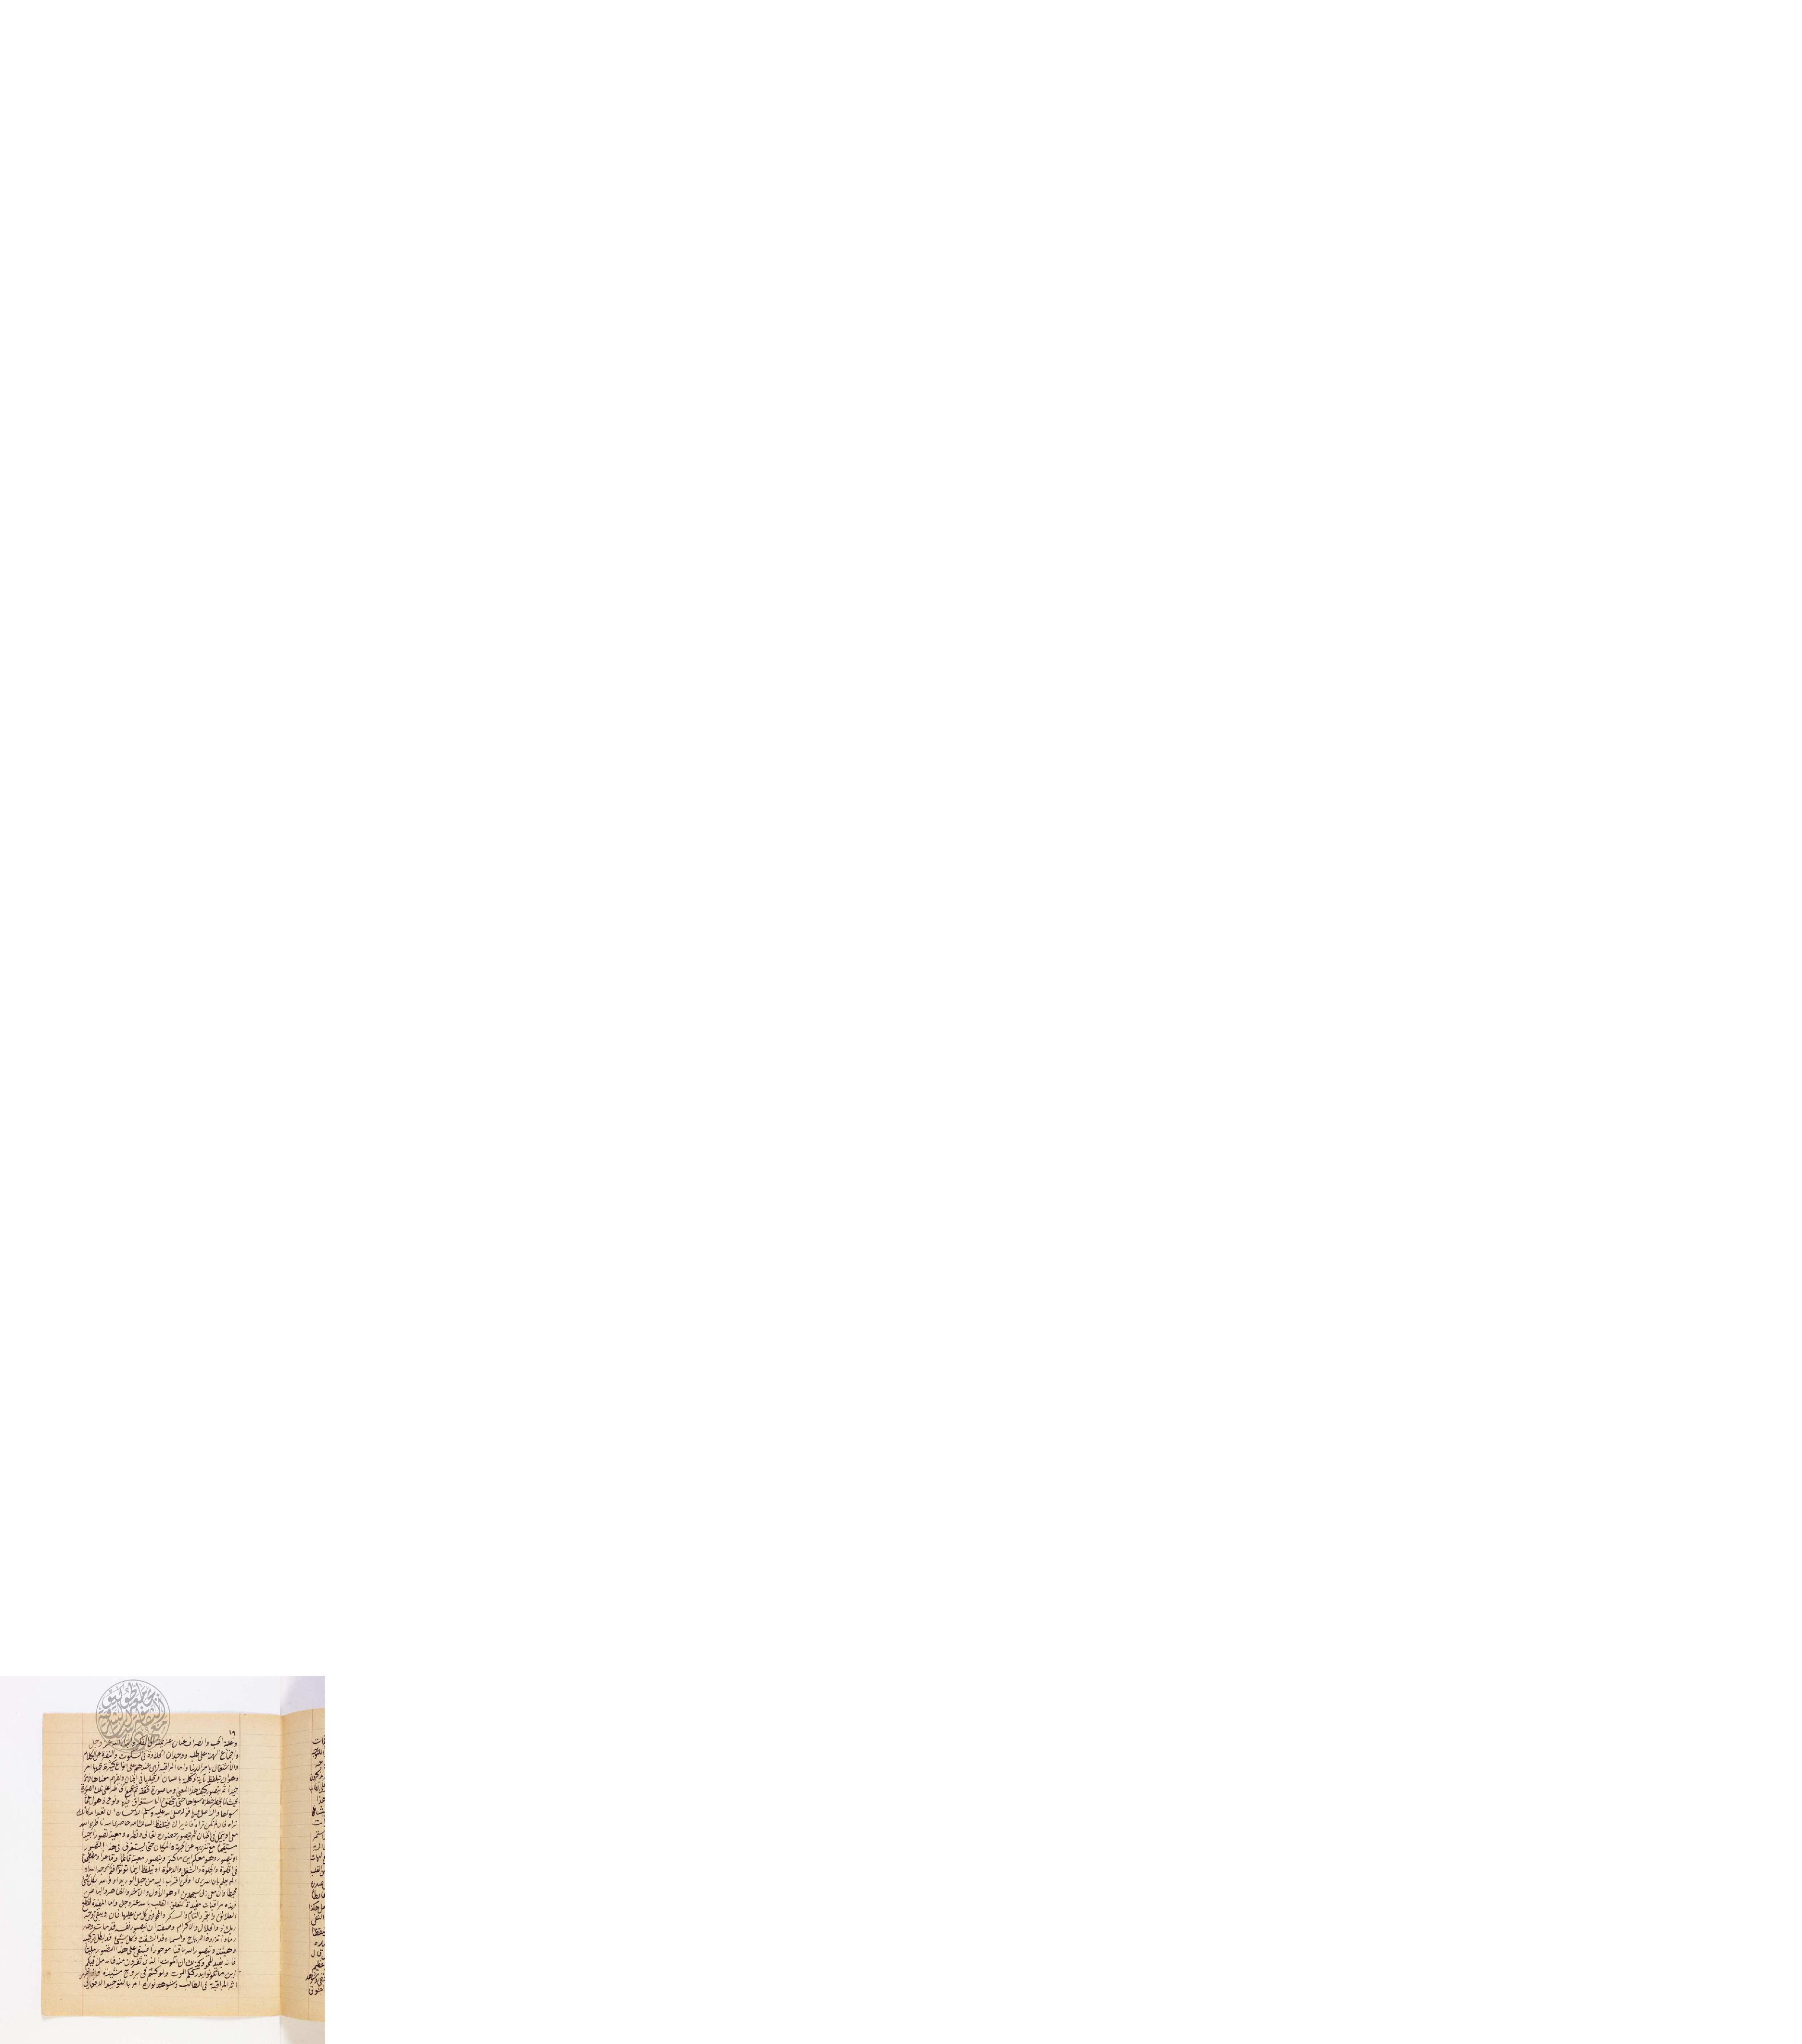 ١٩
وغلبة الحب وانصراف عنان عزيمته الى الفكر والى الله عز وجل
واجتماع الهمة على طلبه ووجدان الحلاوة في السكوت والنفرة عن الكلام
والاشتغال بامر الدنيا واما المراقبة فهي عندهم على انواع كثيرة يجمعها امر
وهو ان يتلفظ بآية او كلمة باللسان او يخيلها في الجنان ويفهم معناها فهما
جيدا ثم يتصور كيف هذا المعنى وما صورة تحققه ثم يجمع الخاطر على تلك الصورة
بحيث لا يخطر خطرة سواها حتى يتحقق الاستغراق فيها
سواها والاصل فيها قوله صلى الله عليه وسلم الاحسان ان تعبد الله كأنك
تراه فان لم تكن تراه فانه يراك فيتلفظ السالك الله حاضري الله ناظري الله
معي او يخيل في الجنان ثم يتصور حضوره تعالى ونظره ومعيته تصورا جيدا
مستقيما مع تنزيهه عن الجهة والمكان حتى يستغرق في هذا التصور
او يتصور وهو معكم اين ما كنتم ويتصور معيته قائما وقاعدا ومضطجعا
في الخلوة والجلوة والشغل والدعوة او يتلفظ اينما تولوا فثم وجه الله او
الم يعلم بان الله يرى او نحن اقرب اليه من حبل الوريد او والله بكل شيء
محيط او ان معي ربي سيهدين او هو الاول والآخر والظاهر والباطن
فهذه مراقبات مفيدة لتعلق القلب بالله عز وجل واما المفيدة لقطع
العلائق والتجرد التام والسكر والمحو فهي كل من عليها فان ويبقى وجه
ربك ذو الجلال والاكرام وصفته ان يتصور نفسه قد مات وصار
رمادا تذروه الرياح والسماء قد انشقت وكل شيء قد بطل تركيبه
وهيئته ويتصور الله باقيا موجودا فيبقى على هذا التصور مليا
فانه يفيد المحو وكذلك ان الموت الذي تفرون منه فانه ملاقيكم
اين ما تكونوا يدرككم الموت ولو كنتم في بروج مشيدة فاذا ظهر
اثر المراقبة في الطالب وشوهد نوره امر بالتوحيد الافعالي